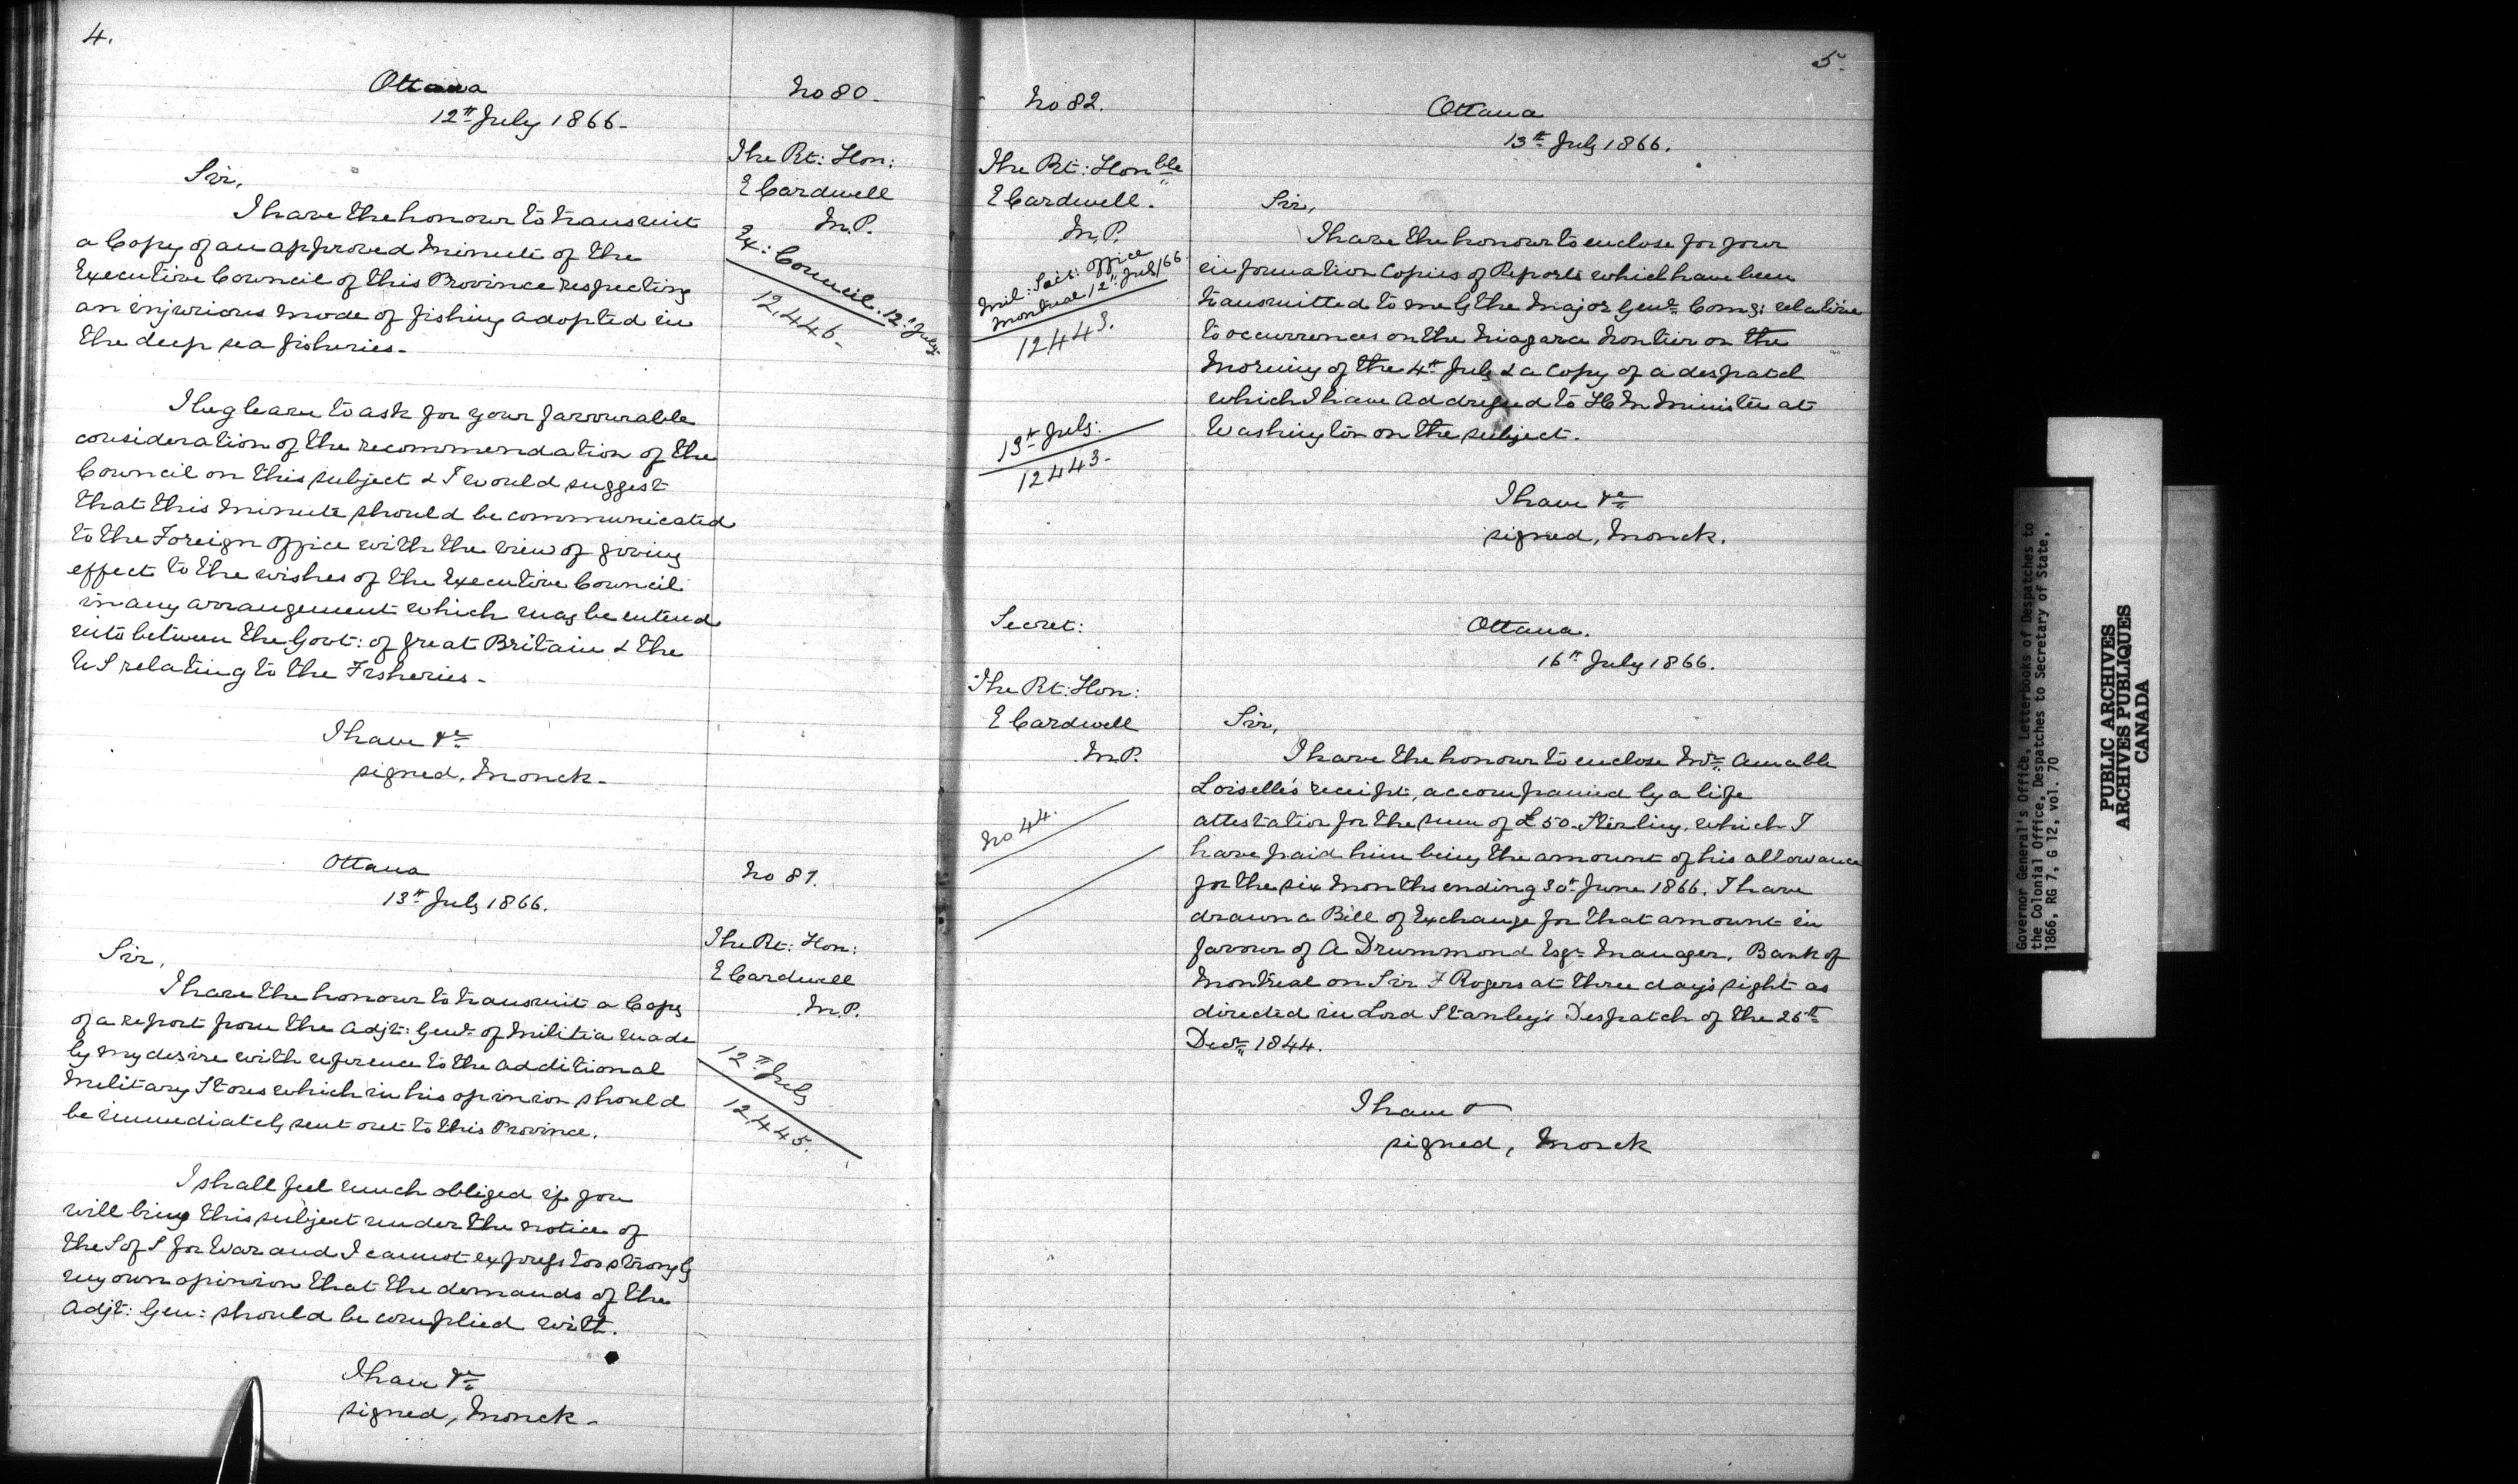 4.
Ottawa
12th July 1866-
No 80-
The Rt: Hon:
E Cardwell
M.P.
Ex: Council. 12th July
12,446-
Sir,
I have the honour to transmit
a Copy of an approved Minute of the
Executive Council of this Province respecting
an injurious mode of fishing adopted in
the deep sea fisheries-
I beg leave to ask for your favourable
consideration of the recommendation of the
Council on this subject & I would suggest
that this Minute should be communicated
to the Foreign Office with the view of giving
effect to the wishes of the Executive Council
in any arrangement which may be entered
into between the Govt: of Great Britain & the
US relating to the Fisheries-
I have &c
signed, Monck-
Ottawa
13th July 1866.
No 81.
The Rt: Hon:
E Cardwell
M.P.
12th July
12,445.
Sir,
I have the honour to transmit a Copy
of a report from the Adjt: Genl: of Militia made
by my desire with reference to the additional
Military Stores which in his opinion should
be immediately sent out to this Province.
I shall feel much obliged if you
will bring this subject under the notice of
the S of S for War and I cannot express too strongly
my own opinion that the demands of the
Adjt: Gen: should be complied with.
I have &c
signed, Monck-
5.
No 82.
The Rt: Honble
E Cardwell.
M.P.
Mil: Sec: Office
Montreal 12th July/66
12443.
13th July:
12443-
Ottawa
13th July 1866.
Sir,
I have the honour to enclose for your
information Copies of Reports which have been
transmitted to me by the Major Genl: Comg: relative
to occurrences on the Niagara Frontier on the
Morning of the 4th July & a Copy of a despatch
which I have addressed to HM Minister at
Washington on the subject.
I have &c
signed, Monck.
Secret:
The Rt: Hon:
E Cardwell
M.P.
No 44.
Ottawa.
16th July 1866.
Sir,
I have the honour to enclose Mr Amable
Loiselle's receipt, accompanied by a life
attestation for the sum of £50 Sterling, which I
have paid him being the amount of his allowance
for the six Months ending 30th June 1866. I have
drawn a Bill of Exchange for that amount in
favour of A Drummond Esqr Manager, Bank of
Montreal on Sir F Rogers at three day's sight as
directed in Lord Stanley's Despatch of the 26th
Decr 1844.
I have
signed, Monck
Governor General's Office, Letterbooks of Despatches to
the Colonial Office, Despatches to Secretary of State,
1866, RG 7, G 12, vol. 70
PUBLIC ARCHIVES
ARCHIVES PUBLIQUES
CANADA